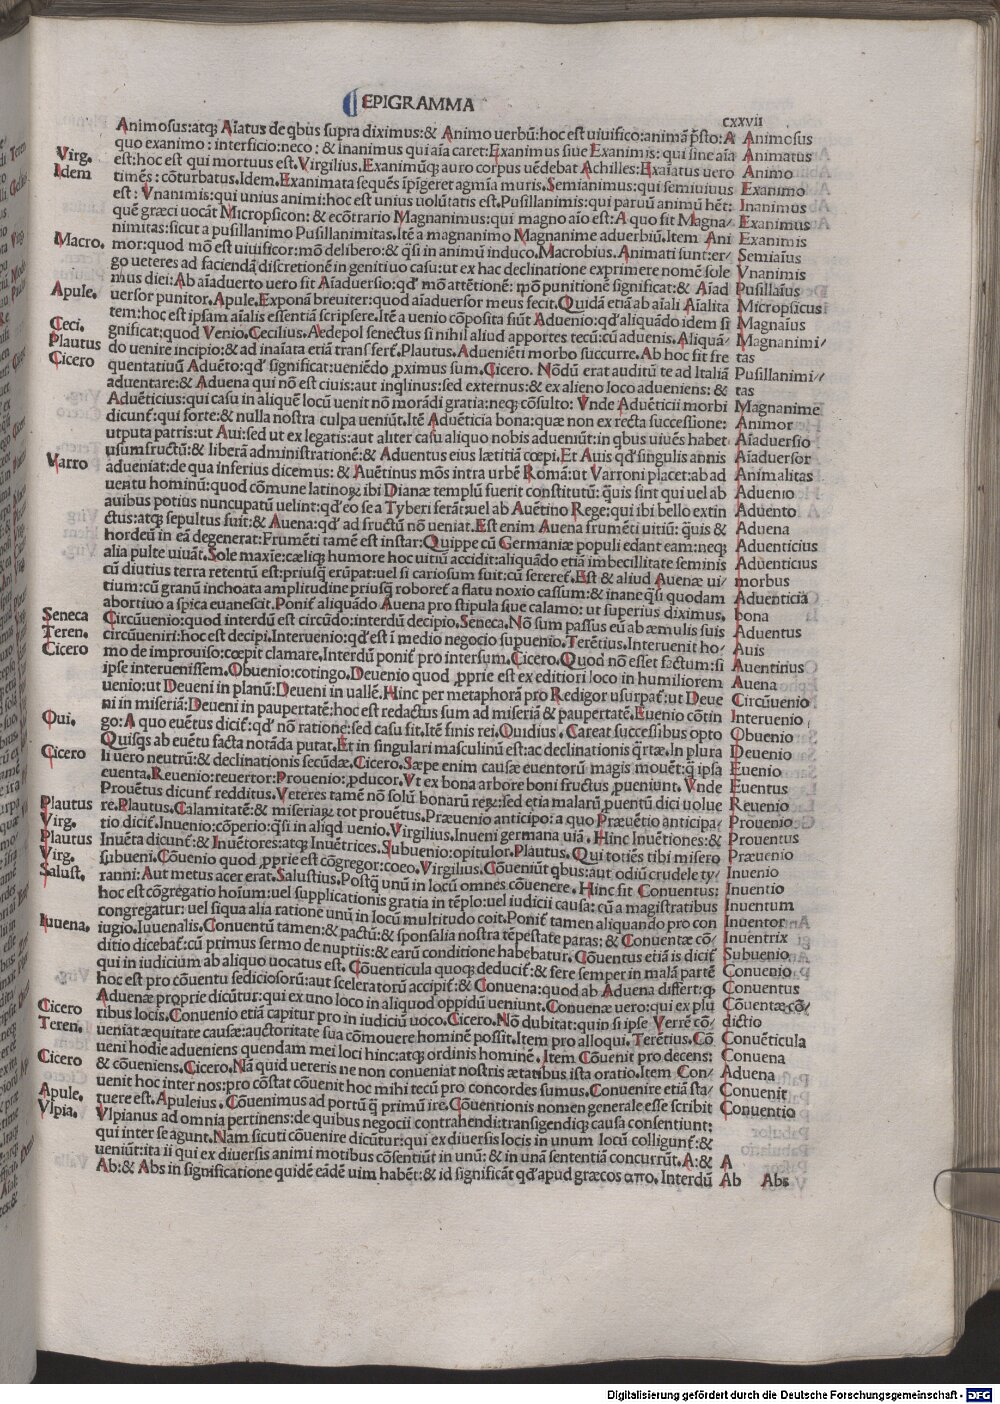 EPIGRAMMA
cxxvii
Animosus:atq; Aīatus de qbus supra diximus:& Animo uerbū:hoc est uiuifico:animā p̄sto:A Animosus
quo exanimo: interficio:neco: & inanimus qui aīa caret:Exanimus siue Exanimis: qui sine aīa Animatus
Virg. est:hoc est qui mortuus est.Virgilius.Exanimūq; auro corpus uēdebat Achilles:Exaīatus uero Animo
Idem timēs: cōturbatus.Idem.Exanimata sequēs īpīgeret agmīa muris.Semianimus:qui semiuiuus Exanimo
est: Vnanimis:qui unius animi:hoc est unius uolūtatis est.Pusillanimis:qui paruū animū hēt: Inanimus
quē græci uocāt Micropsicon: & ecōtrario Magnanimus:qui magno aīo est:A quo fit Magna/ Exanimus
nimitas:sicut a pusillanimo Pusillanimitas.Itē a magnanimo Magnanime aduerbiū.Item Ani Exanimis
Macro. mor:quod mō est uiuificor:mō delibero:& qsi in animū induco.Macrobius.Animati sunt:er/ Semiaīus
go ueteres ad faciendā discretionē in genitiuo casu:ut ex hac declinatione exprimere nomē sole Vnanimis
mus diei:Ab aīaduerto uero fit Aīaduersio:qd' mō attētionē: mō punitionē significat:& Aīad Pusillaīus
Apule. uersor punitor.Apule.Exponā breuiter:quod aīaduersor meus fecit.Quidā etiā ab aīali Aīalita Micropsicus
tem:hoc est ipsam aīalis essentiā scripsere.Itē a uenio cōposita siūt Aduenio:qd'aliquādo idem si Magnaīus
Ceci. gnificat:quod Venio.Cecilius.Aedepol senectus si nihil aliud apportes tecū:cū aduenis.Aliquā/ Magnanimi/
Plautus do uenire incipio:& ad inaīata etiā transfert̄.Plautus.Adueniēti morbo succurre.Ab hoc fit fre tas
Cicero quentatiuū Aduēto:qd' significat:ueniēdo ꝓximus sum.Cicero. Nōdū erat auditū te ad Italiā Pusillanimi//
aduentare:& Aduena qui nō est ciuis:aut inqlinus:sed externus:& ex alieno loco adueniens: & tas
Aduēticius:qui casu in aliquē locū uenit nō morādi gratia:neq; cōsulto: Vnde Aduēticii morbi Magnanime
dicunt̄:qui forte:& nulla nostra culpa ueniūt.Itē Aduēticia bona:quæ non ex recta successione: Animor
utputa patris:ut Aui:sed ut ex legatis:aut aliter casu aliquo nobis adueniūt:in qbus uiuēs habet Aīaduersio
usumfructū:& liberā administrationē:& Aduentus eius lætitiā cœpi.Et Auis qd'singulis annis Aīaduersor
Varro adueniat:de qua inferius dicemus: & Auētinus mōs intra urbē Romā:ut Varroni placet:ab ad Animalitas
uentu hominū:quod cōmune latinoꝝ ibi Dianæ templū fuerit constitutū: q̄uis sint qui uel ab Aduenio
auibus potius nuncupatū uelint:qd'eo se a Tyberi ferāt:uel ab Auētino Rege:qui ibi bello extin Aduento
ctus:atq; sepultus fuit:& Auena:qd' ad fructū nō ueniat.Est enim Auena frumēti uitiū: q̄uis & Aduena
hordeū in eā degenerat:Frumēti tamē est instar:Quippe cū Germaniæ populi edant eam:neq; Aduenticius
alia pulte uiuāt.Sole maxīe:cæliq; humore hoc uitiū accidit:aliquādo etiā imbecillitate seminis Aduenticius
cū diutius terra retentū est:priusq̄ erūpat:uel si cariosum fuit:cū sereret̄.Est & aliud Auenæ ui/ morbus
tium:cū granū inchoata amplitudine priusq̄ roboret̄ a flatu noxio cassum:& inane qsi quodam Aduenticia
abortiuo a spica euanescit.Ponit̄ aliquādo Auena pro stipula siue calamo: ut superius diximus. bona
Seneca Circūuenio:quod interdū est circūdo:interdū decipio.Seneca.Nō sum passus eū ab æmulis suis Aduentus
Teren. circūueniri:hoc est decipi.Interuenio:qd'est ī medio negocio supuenio.Terētius.Interuenit ho/ Auis
Cicero mo de improuiso:cœpit clamare.Interdū ponit̄ pro intersum.Cicero.Quod nō esset factum:si Auentinus
ipse interuenissem.Obuenio:cōtingo.Deuenio quod ꝓprie est ex editiori loco in humiliorem Auena
uenio:ut Deueni in planū:Deueni in uallē.Hinc per metaphorā pro Redigor usurpat̄:ut Deue Circūuenio
ni in miseriā:Deueni in paupertatē:hoc est redactus sum ad miseriā & paupertatē.Euenio cōtin Interuenio
Oui. go:A quo euētus dicit̄:qd' nō ratione:sed casu fit.Itē finis rei.Ouidius. Careat successibus opto Obuenio
Quisqs ab euētu facta notāda putat.Et in singulari masculinū est:ac declinationis q̄rtæ.In plura Deuenio
Cicero li uero neutrū:& declinationis secūdæ.Cicero.Sæpe enim causæ euentorū magis mouēt:q̄ ipsa Euenio
euenta.Reuenio:reuertor:Prouenio:ꝓducor.Vt ex bona arbore boni fructus ꝓueniunt. Vnde Euentus
Prouētus dicunt̄ redditus.Veteres tamē nō solū bonarū reꝝ:sed etia malarū ꝓuentū dici uolue Reuenio
Plautus re.Plautus.Calamitatē:& miseriaꝝ tot prouētus.Præuenio anticipo:a quo Præuētio anticipa/ Prouenio
Virg. tio dicit̄.Inuenio:cōperio:qsi in aliqd uenio.Virgilius.Inueni germana uiā. Hinc Inuētiones:& Prouentus
Plautus Inuēta dicunt̄:& Inuētores:atq; Inuētrices.Subuenio:opitulor.Plautus.Qui totiēs tibi misero Præuenio
Virg. subueni.Cōuenio quod ꝓprie est cōgregor:coeo.Virgilius.Cōueniūt qbus:aut odiū crudele ty/ Inuenio
Salust. ranni:Aut metus acer erat.Salustius.Postq̄ unū in locū omnes cōuenere. Hinc fit Conuentus: Inuentio
hoc est cōgregatio hoīum:uel supplicationis gratia in tēplo:uel iudicii causa: cū a magistratibus Inuentum
congregatur: uel siqua alia ratione unū in locū multitudo coit.Ponit̄ tamen aliquando pro con Inuentor
Iuuena. iugio.Iuuenalis.Conuentū tamen:& pactū:& sponsalia nostra tēpestate paras: & Conuentæ cō/ Inuentrix
ditio dicebat̄:cū primus sermo de nuptiis:& earū conditione habebatur.Cōuentus etiā is dicit̄ Subuenio
qui in iudicium ab aliquo uocatus est. Cōuenticula quoq; deducit̄:& fere semper in malā partē Conuenio
hoc est pro cōuentu sediciosorū:aut sceleratorū accipit̄:& Conuena:quod ab Aduena differt:qꝫ Conuentus
Aduenæ proprie dicūtur:qui ex uno loco in aliquod oppidū ueniunt.Conuenæ uero:qui ex plu Cōuentæ cō/
Cicero ribus locis.Conuenio etiā capitur pro in iudiciū uoco.Cicero.Nō dubitat:quin si ipse Verrē cō/ dictio
Teren. ueniat æquitate causæ:auctoritate sua cōmouere hominē possit.Item pro alloqui.Terētius.Cō Conuēticula
ueni hodie adueniens quendam mei loci hinc:atq; ordinis hominē. Item Cōuenit pro decens: Conuena
Cicero & cōueniens.Cicero.Nā quid ueteris ne non conueniat nostris ætatibus ista oratio.Item Con/ Aduena
uenit hoc inter nos:pro cōstat cōuenit hoc mihi tecū pro concordes sumus.Conuenire etiā sta/ Conuenit
Apule. tuere est.Apuleius. Cōuenimus ad portū q̄ primū ire.Cōuentionis nomen generale esse scribit Conuentio
Vlpia. Vlpianus ad omnia pertinens:de quibus negocii contrahendi:transigendiq; causa consentiunt:
qui inter se agunt.Nam sicuti cōuenire dicūtur:qui ex diuersis locis in unum locū colligunt̄:&
ueniūt:ita ii qui ex diuersis animi motibus cōsentiūt in unū:& in unā sententiā concurrūt.A:& A
Ab:& Abs in significatione quidē eādē uim habēt:& id significāt qd'apud græcos απο. Interdū Ab Abs
Digitalisierung gefördert durch die Deutsche Forschungsgemeinschaft - DFG